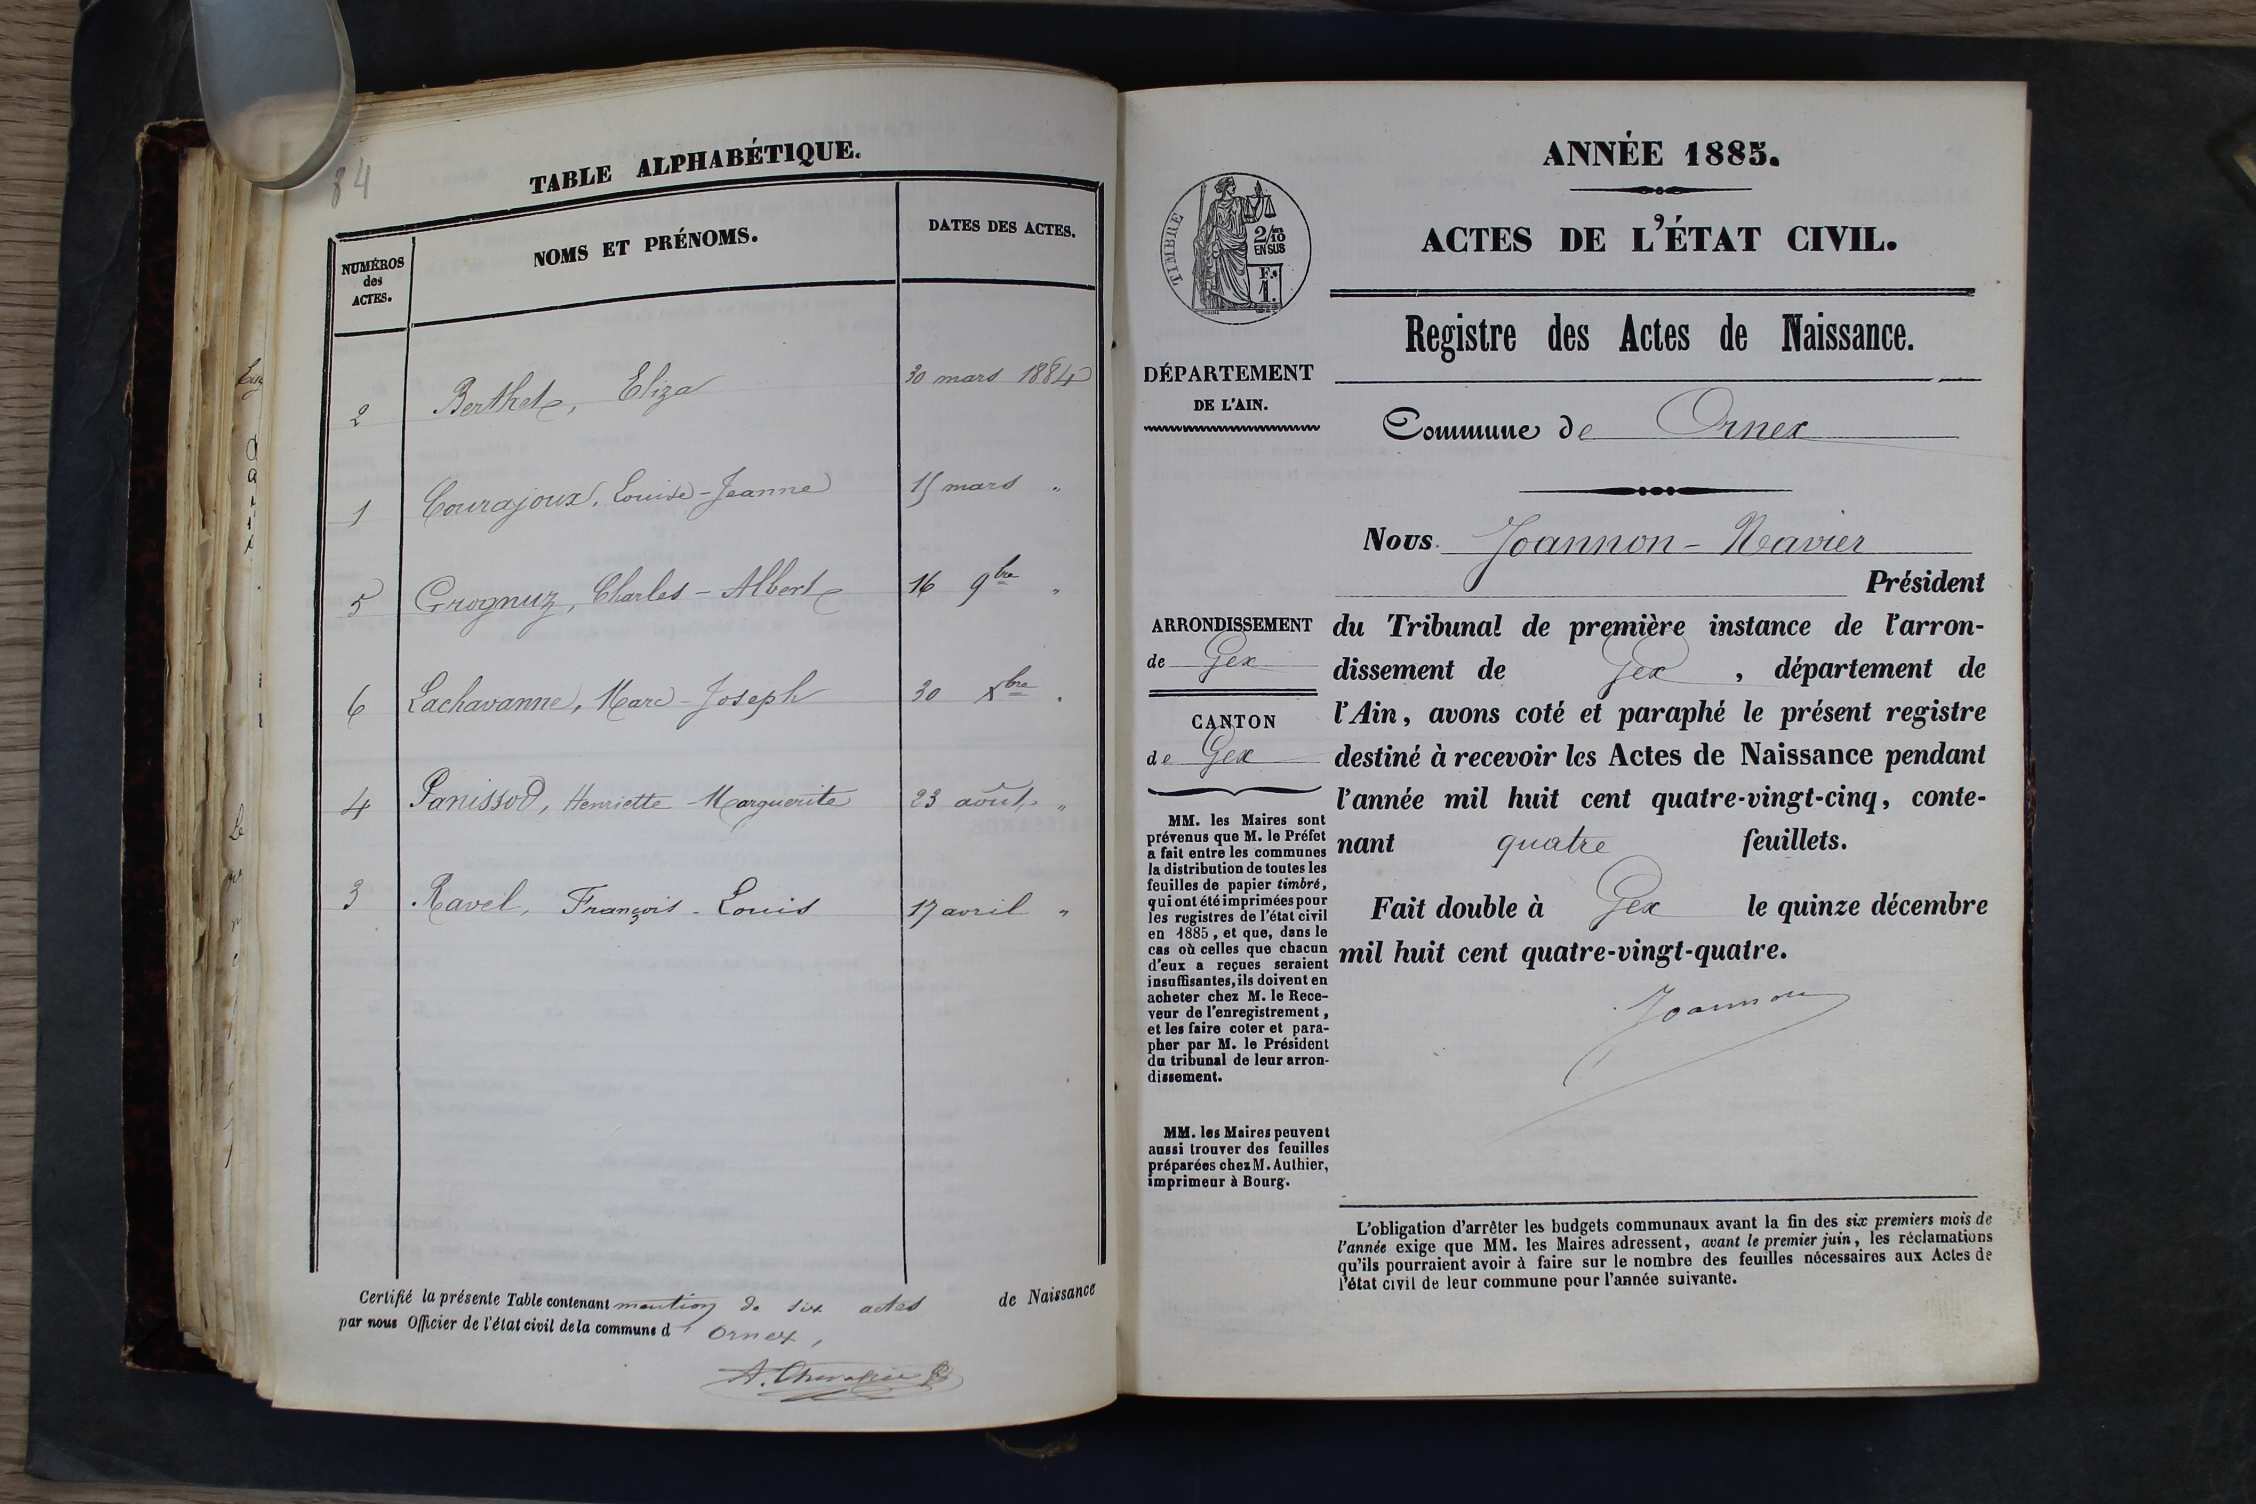 84
TABLE ALPHABÉTIQUE.
NUMÉROS
des
ACTES.
NOMS ET PRÉNOMS.
DATES DES ACTES.
2 Berthet, Eliza 30 mars 1884
1 Courajoux, Louise-Jeanne 15 mars "
5 Grognuz, Charles-Albert 16 9bre "
6 Lachavanne, Marc-Joseph 30 Xbre "
4 Panissod, Henriette Marguerite 23 août "
3 Ravel, François-Louis 17 avril "
Certifié la présente Table contenant mention de six actes de Naissance
par nous Officier de l'état civil de la commune d'Ornex,
ANNÉE 1885.
ACTES DE L'ÉTAT CIVIL.
TIMBRE
2/10
EN SUS
F.
1.
Registre des Actes de Naissance.
DÉPARTEMENT
DE L'AIN.
Commune de Ornex
Nous Joannon-Navier
Président
ARRONDISSEMENT
de Gex
CANTON
de Gex
du Tribunal de première instance de l'arron-
dissement de Gex, département de
l'Ain, avons coté et paraphé le présent registre
destiné à recevoir les Actes de Naissance pendant
l'année mil huit cent quatre-vingt-cinq, conte-
nant quatre feuillets.
Fait double à Gex le quinze décembre
mil huit cent quatre-vingt-quatre.
Joannon
MM. les Maires sont
prévenus que M. le Préfet
a fait entre les communes
la distribution de toutes les
feuilles de papier timbré,
qui ont été imprimées pour
les registres de l'état civil
en 1885, et que, dans le
cas où celles que chacun
d'eux a reçues seraient
insuffisantes, ils doivent en
acheter chez M. le Rece-
veur de l'enregistrement,
et les faire coter et para-
pher par M. le Président
du tribunal de leur arron-
dissement.
MM. les Maires peuvent
aussi trouver des feuilles
préparées chez M. Authier,
imprimeur à Bourg.
L'obligation d'arrêter les budgets communaux avant la fin des six premiers mois de
l'année exige que MM. les Maires adressent, avant le premier juin, les réclamations
qu'ils pourraient avoir à faire sur le nombre des feuilles nécessaires aux Actes de
l'état civil de leur commune pour l'année suivante.